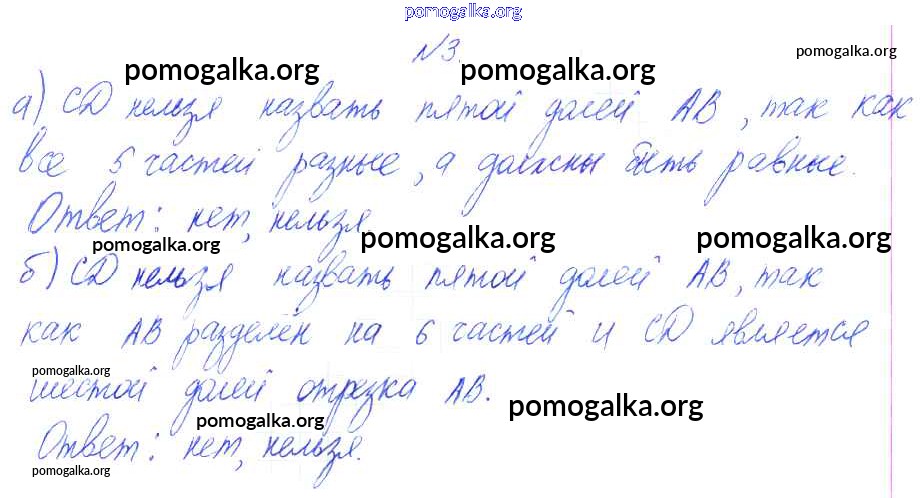 pomogalka.org
№3.
pomogalka.org
pomogalka.org pomogalka.org
а) CD нельзя назвать пятой долей АВ, так как
все 5 частей разные, а должны быть равные.
Ответ: нет, нельзя.
pomogalka.org pomogalka.org pomogalka.org
б) CD нельзя назвать пятой долей АВ, так
как АВ разделён на 6 частей и CD является
pomogalka.org
шестой долей отрезка АВ.
pomogalka.org pomogalka.org
Ответ: нет, нельзя.
pomogalka.org